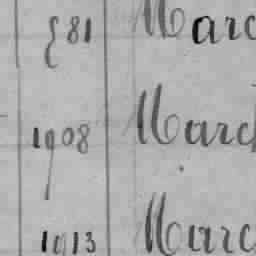 1881 Marc
1908 March
1913 Marc